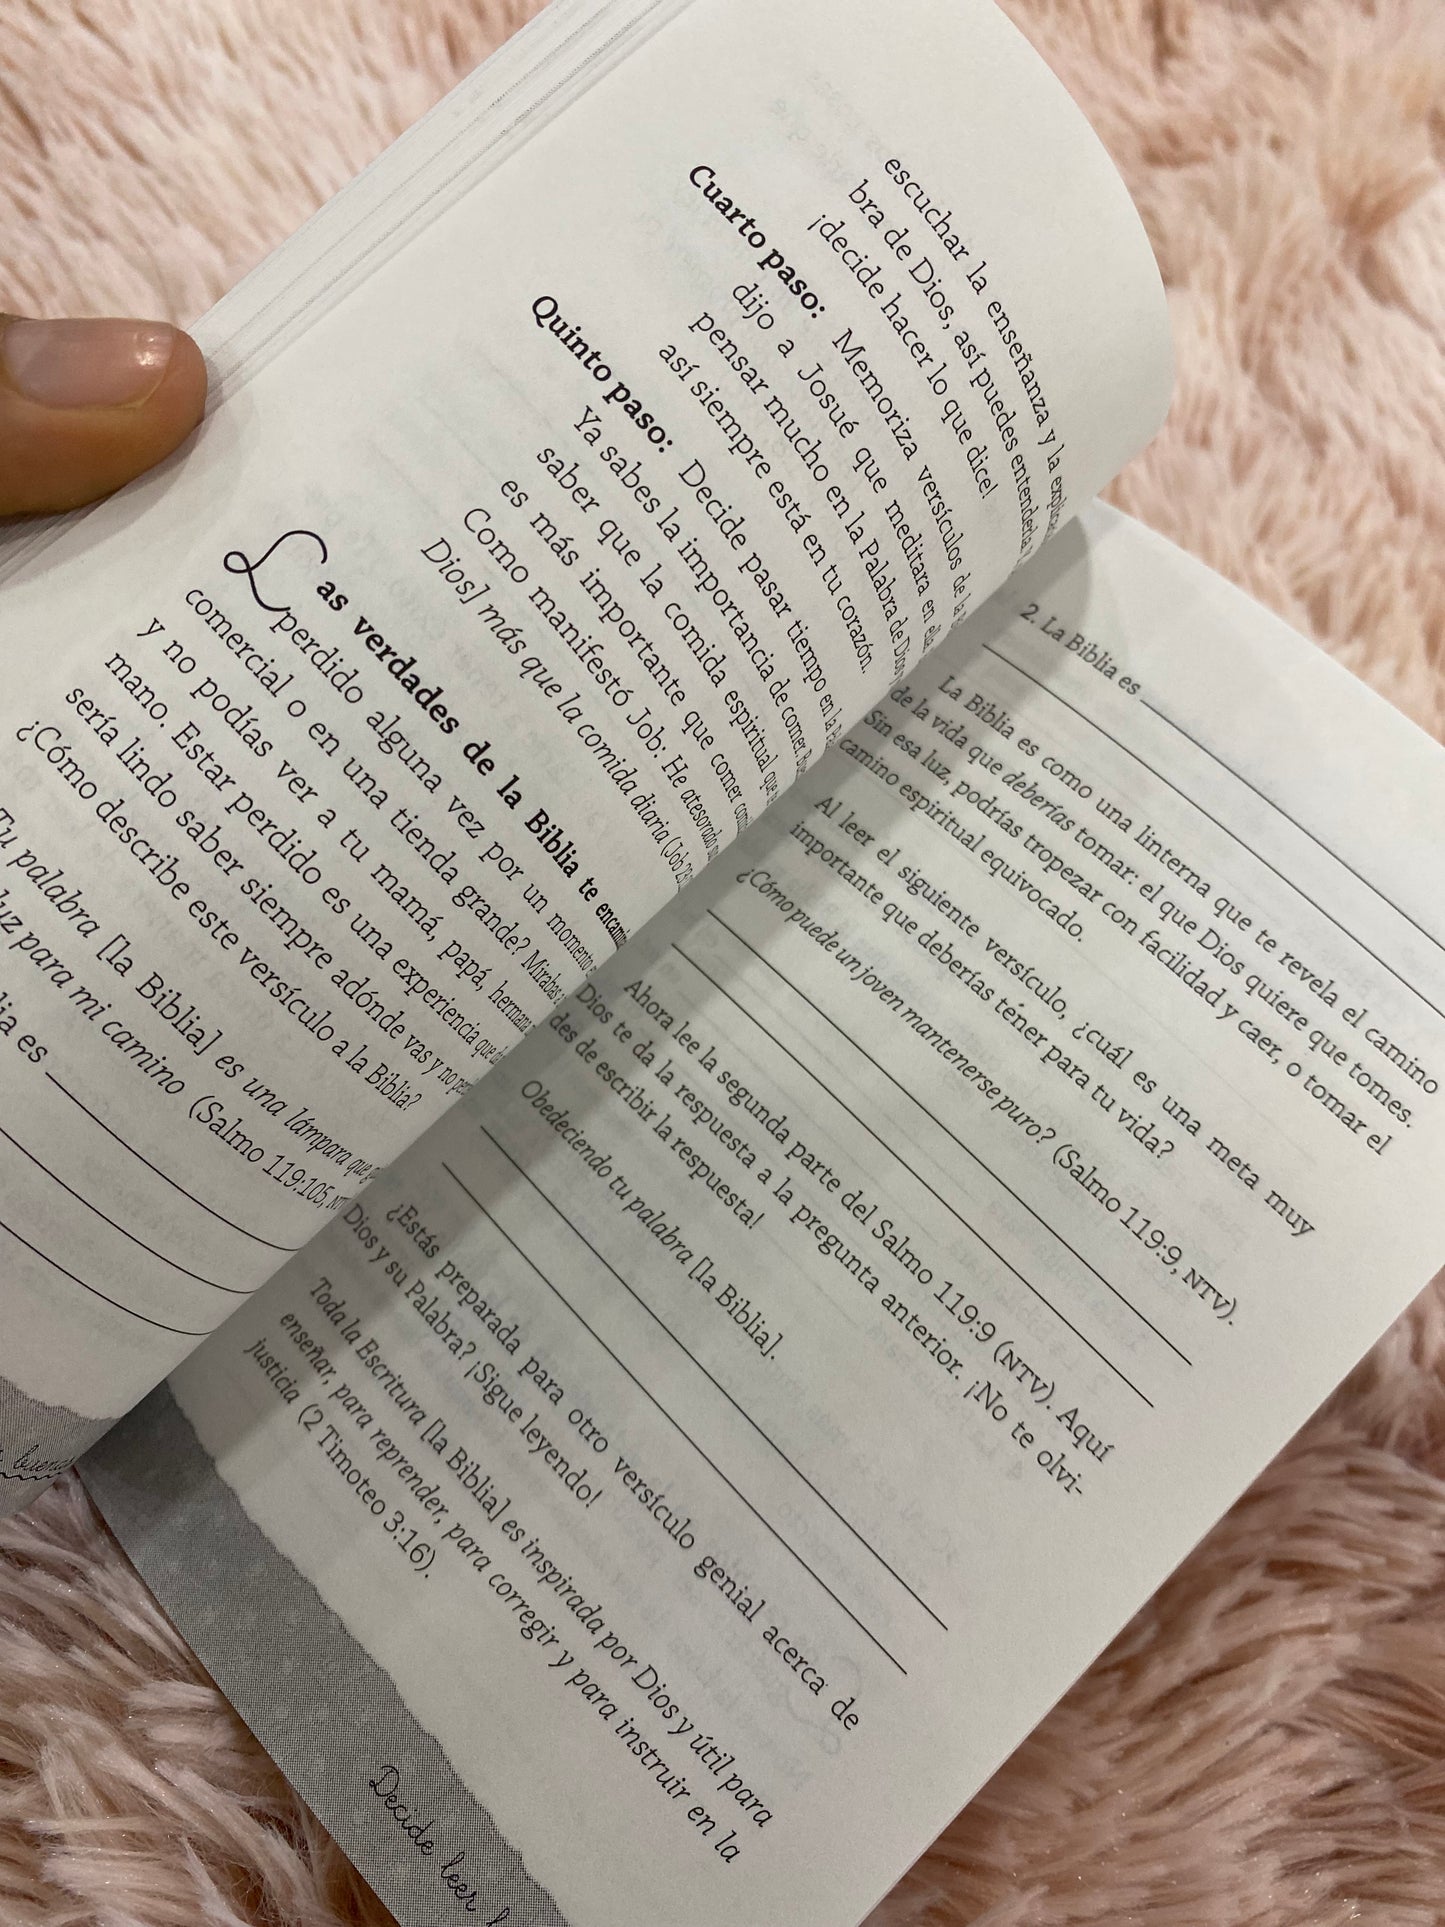 escuchar la enseñanza y la
bra de Dios, así puedes entenderla
¡decide hacer lo que dice!
Cuarto paso: Memoriza versículos de la
dijo a Josué que meditara en ella
pensar mucho en la Palabra de Dios
así siempre está en tu corazón.
Quinto paso: Decide pasar tiempo en la
Ya sabes la importancia de comer.
saber que la comida espiritual que
es más importante que comer
Como manifestó Job: He atesorado
Dios] más que la comida diaria (Job
Las verdades de la Biblia te
perdido alguna vez por un momento
comercial o en una tienda grande? Mirabas
y no podías ver a tu mamá, papá,
mano. Estar perdido es una experiencia que
sería lindo saber siempre adónde vas y no
¿Cómo describe este versículo a la Biblia?
Tu palabra [la Biblia] es una lámpara que
luz para mi camino (Salmo 119:105,
es
2. La Biblia es
La Biblia es como una linterna que te revela el camino
de la vida que deberías tomar: el que Dios quiere que tomes.
Sin esa luz, podrías tropezar con facilidad y caer, o tomar el
camino espiritual equivocado.
Al leer el siguiente versículo, ¿cuál es una meta muy
importante que deberías tener para tu vida?
¿Cómo puede un joven mantenerse puro? (Salmo 119:9, NTV).
Ahora lee la segunda parte del Salmo 119:9 (NTV). Aquí
Dios te da la respuesta a la pregunta anterior. ¡No te olvi-
des de escribir la respuesta!
Obedeciendo tu palabra [la Biblia].
¿Estás preparada para otro versículo genial acerca de
Dios y su Palabra? ¡Sigue leyendo!
Toda la Escritura [la Biblia] es inspirada por Dios y útil para
enseñar, para reprender, para corregir y para instruir en la
justicia (2 Timoteo 3:16).
Decide leer